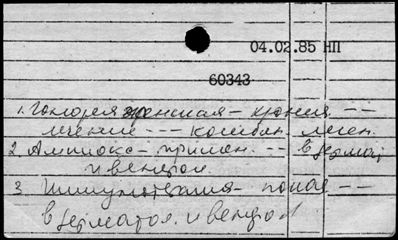 04.02.85 НП
60343
1. Гонорея женская – хрония --
лечение --- комбин. леген.
2. Ампиокс – примен. -- в дермат.
и венерол.
3. Иммунотерапия – показ --
в дерматол. и венерол